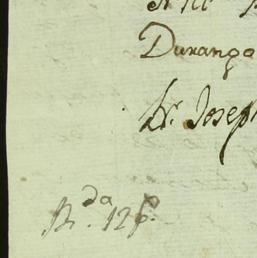 Durango
Dr. Joseph
R.da 12 p.